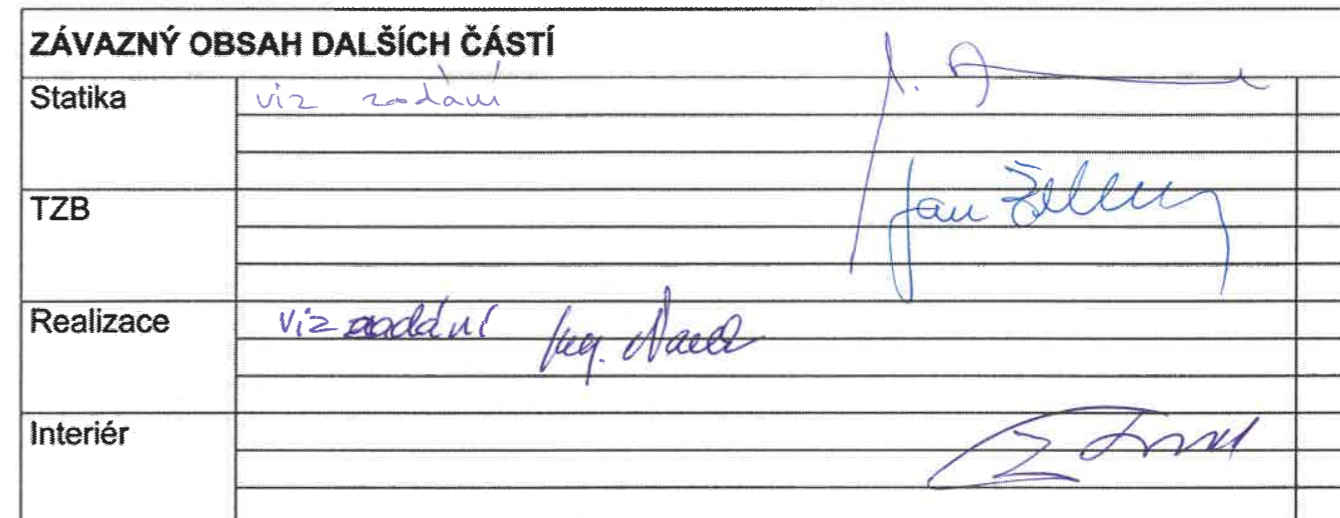 ZÁVAZNÝ OBSAH DALŠÍCH ČÁSTÍ
Statika viz zadání
TZB Jan
Realizace viz zadání Ing.
Interiér